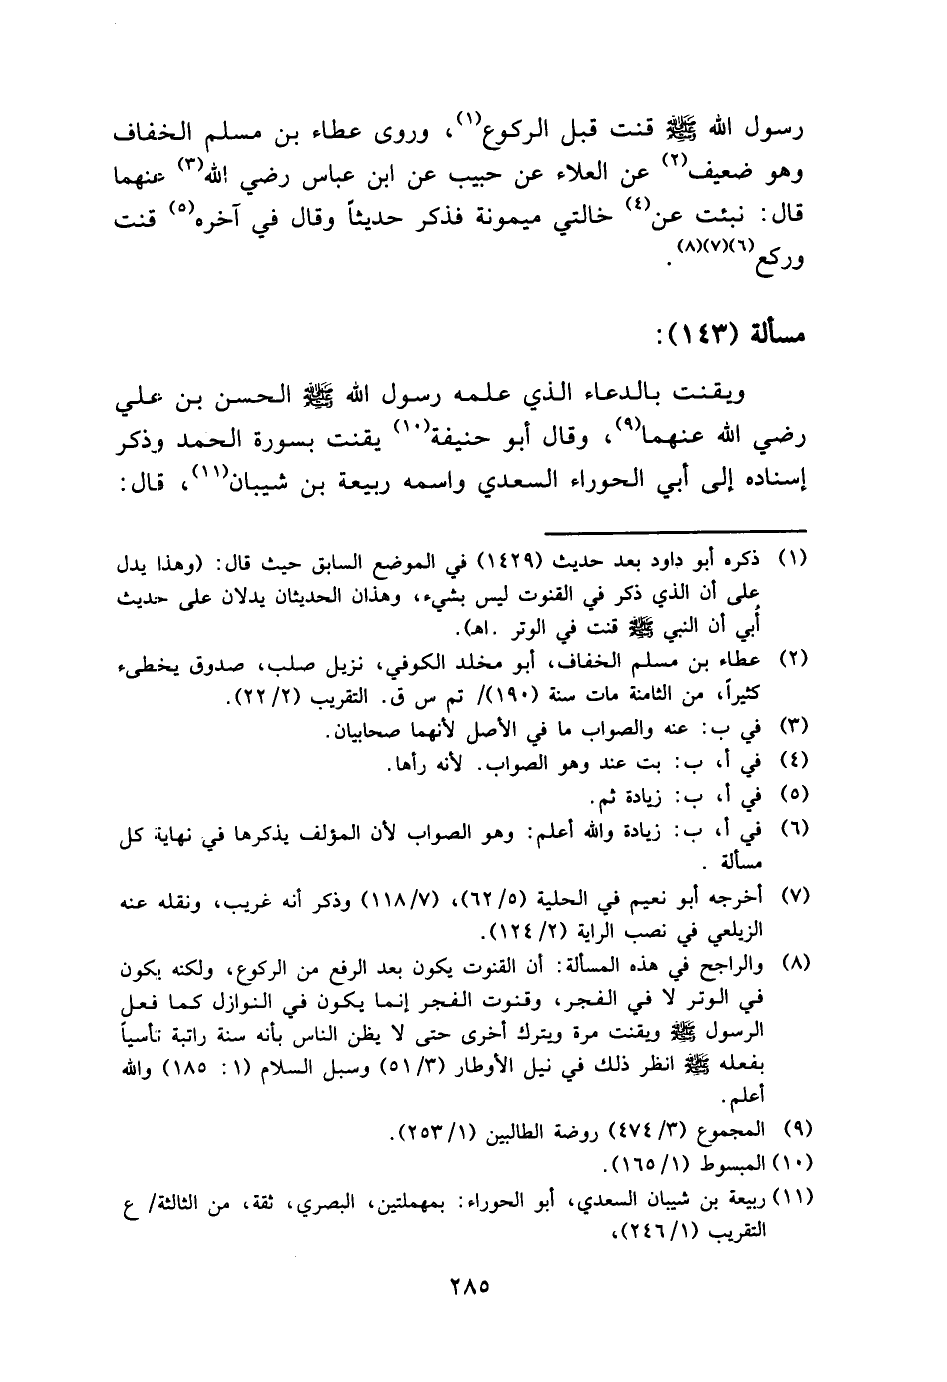 رسول الله ﷺ قنت قبل الركوع(١)، وروى عطاء بن مسلم الخفاف
وهو ضعيف(٢) عن العلاء عن حبيب عن ابن عباس رضي الله(٣) عنهما
قال: نبئت عن(٤) خالتي ميمونة فذكر حديثاً وقال في آخره(٥) قنت
وركع(٦)(٧)(٨).
مسألة (١٤٣):
ويقنت بالدعاء الذي علمه رسول الله ﷺ الحسن بن علي
رضي الله عنهما(٩)، وقال أبو حنيفة(١٠) يقنت بسورة الحمد وذكر
إسناده إلى أبي الحوراء السعدي واسمه ربيعة بن شيبان(١١)، قال:
(١) ذكره أبو داود بعد حديث (١٤٢٩) في الموضع السابق حيث قال: (وهذا يدل
على أن الذي ذكر في القنوت ليس بشيء، وهذان الحديثان يدلان على حديث
أُبي أن النبي ﷺ قنت في الوتر .اهـ).
(٢) عطاء بن مسلم الخفاف، أبو مخلد الكوفي، نزيل صلب، صدوق يخطىء
كثيراً، من الثامنة مات سنة (١٩٠)/ تم س ق. التقريب (٢٢/٢).
(٣) في ب: عنه والصواب ما في الأصل لأنهما صحابيان.
(٤) في أ، ب: بت عند وهو الصواب. لأنه رأها.
(٥) في أ، ب: زيادة ثم.
(٦) في أ، ب: زيادة والله أعلم: وهو الصواب لأن المؤلف يذكرها في نهاية كل
مسألة .
(٧) أخرجه أبو نعيم في الحلية (٦٢/٥)، (١١٨/٧) وذكر أنه غريب، ونقله عنه
الزيلعي في نصب الراية (١٢٤/٢).
(٨) والراجح في هذه المسألة: أن القنوت يكون بعد الرفع من الركوع، ولكنه يكون
في الوتر لا في الفجر، وقنوت الفجر إنما يكون في النوازل كما فعل
الرسول ﷺ ويقنت مرة ويترك أخرى حتى لا يظن الناس بأنه سنة راتبة تأسياً
بفعله ﷺ انظر ذلك في نيل الأوطار (٥١/٣) وسبل السلام (١: ١٨٥) والله
أعلم.
(٩) المجموع (٤٧٤/٣) روضة الطالبين (٢٥٣/١).
(١٠) المبسوط (١٦٥/١).
(١١) ربيعة بن شيبان السعدي، أبو الحوراء: بمهملتين، البصري، ثقة، من الثالثة/ ع
التقريب (٢٤٦/١)،
٢٨٥